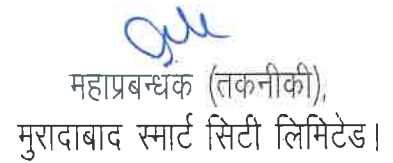 महाप्रबन्धक (तकनीकी),
मुरादाबाद स्मार्ट सिटी लिमिटेड।